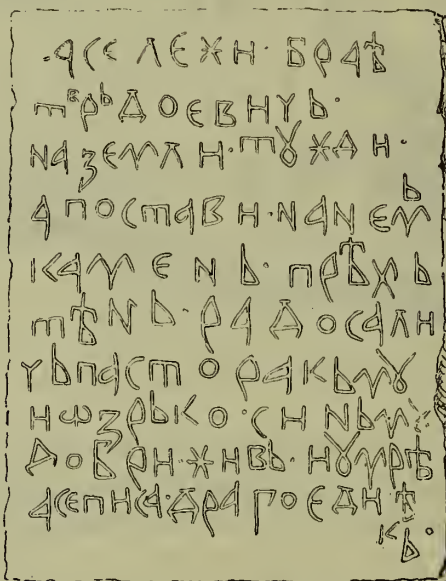 ·асє лєжи· браѣ
тврьдоєвичь·
назємли·тꙋжди·
апостави·нанємь
камєнь·прѣхь
тѣнь·радосали
чьпасторакьмꙋ
иѡзрько·синьм
добри·живь·иꙋмрѣ
асєписа·драгоєдиѣ
кь·